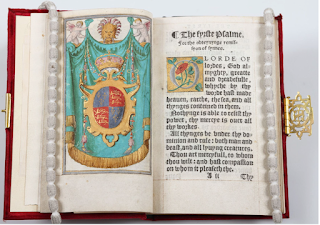 ¶ The fyrste Psalme.
For the obteynynge remis-
syon of synnes.
O LORDE OF
lordes, God al-
myghty, greate
and dreadefulle,
whyche by thy
worde hast made
heauen, earthe, the sea, and all
thynges conteined in them.
Nothynge is able to resist thy
power, thy mercye is ouer all
thy workes.
All thynges be vnder thy do-
minion and rule: both man and
beast, and all lyuyng creatures.
Thou art mercyfull, to whom
thou wilt: and hast compassion
on whom it pleaseth the.
A ii Thy